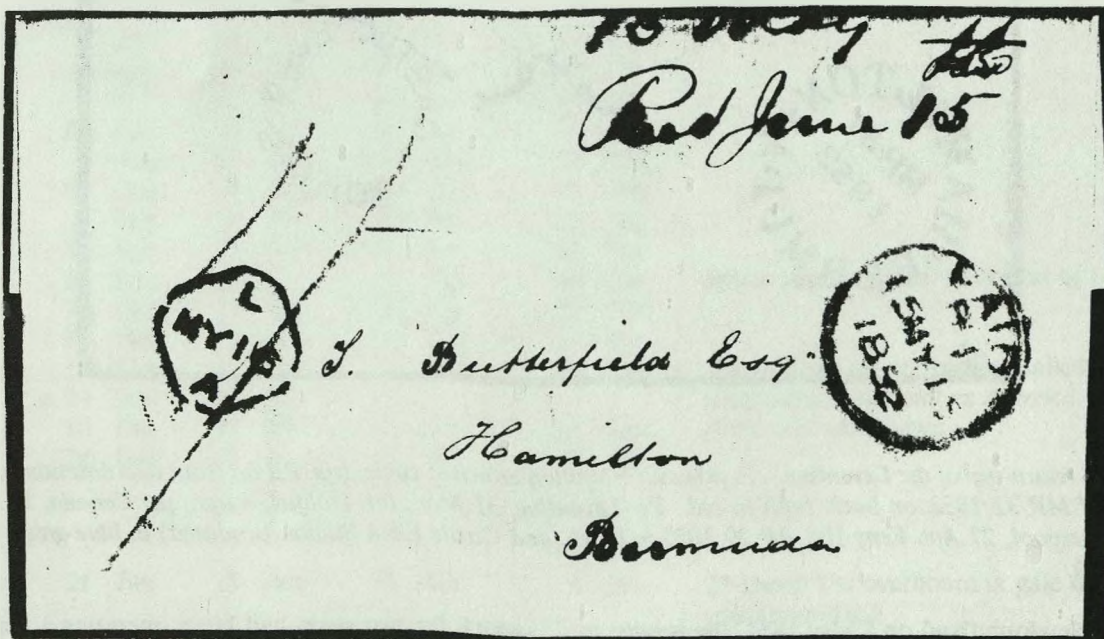 15 May
Recd June 15
L
MY 15
A
PAID
15 MY 15
1852
S. Butterfield Esq.
Hamilton
Bermuda